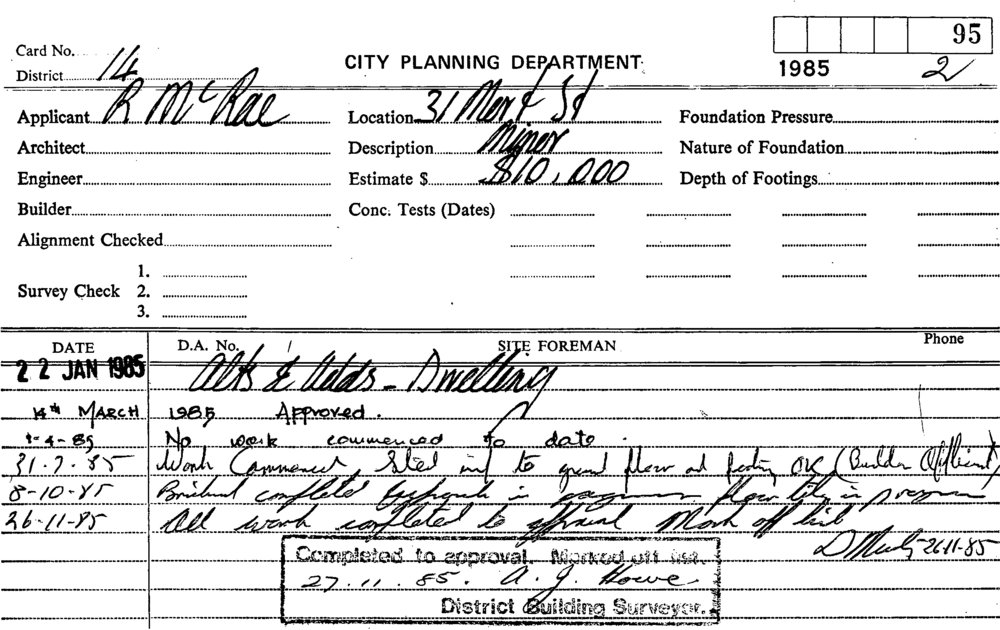 95
Card No.
CITY PLANNING DEPARTMENT
1985 2
District 14
Applicant R McRae Location 31 St Foundation Pressure
Architect Description Minor Nature of Foundation
Engineer Estimate $ $10,000 Depth of Footings
Builder Conc. Tests (Dates)
Alignment Checked
1.
Survey Check 2.
3.
DATE D.A. No. SITE FOREMAN Phone
22 JAN 1985 Alts & Adds - Dwelling
14th MARCH 1985 Approved.
1-4-85 No work commenced to date.
31.7.85 Work Commenced, Steel to ground floor and footing OK (Builder
8-10-85 completed in progress floor in progress
26-11-85 All work completed to approval Mark off list
26-11-85
Completed to approval. Marked off list.
27.11.85. A. J. Howe
District Building Surveyor.